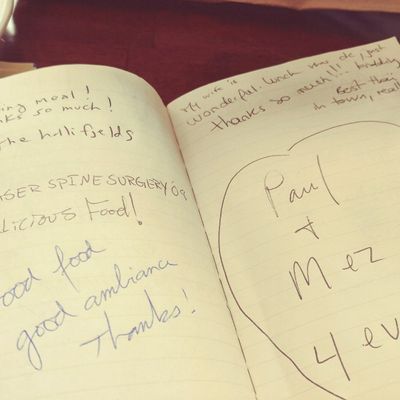 ing meal!
ks so much!
The Hollifields
ASER SPINE SURGERY '09
licious Food!
ood food
good ambiance
Thanks!
My wife is
wonderful. Lunch was ok, just
thanks so much!!!
Best thai
in town, real
Paul
+
Mez
4 ev